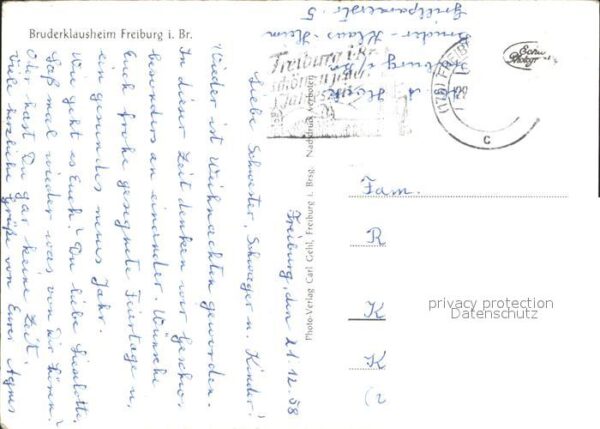 Bruderklausheim Freiburg i. Br.
Bruder-Klaus-Heim
Freiburg, den 21.12.58
Liebe Schwester, Schwager u. Kinder!
Wieder ist Weihnachten geworden.
In dieser Zeit denken wir Geschw.
besonders an einander. Wünsche
Euch frohe gesegnete Feiertage u.
ein gesundes neues Jahr.
Wie geht es Euch? Du liebe Lieselotte,
laß mal wieder was von Dir hören!
Oder hast Du gar keine Zeit.
Viele herzliche Grüße von Eurer Agnes
Photo-Verlag Carl Gehl, Freiburg i. Brsg. Nachdruck verboten
Freiburg i. Br.
(17b) FREIBURG
c
Echte
Photogr.
Fam.
R
K
K
privacy protection
Datenschutz